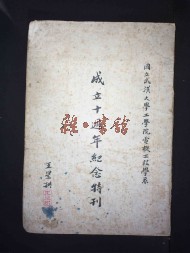 國立武漢大學工學院電機工程學系
成立十週年紀念特刊